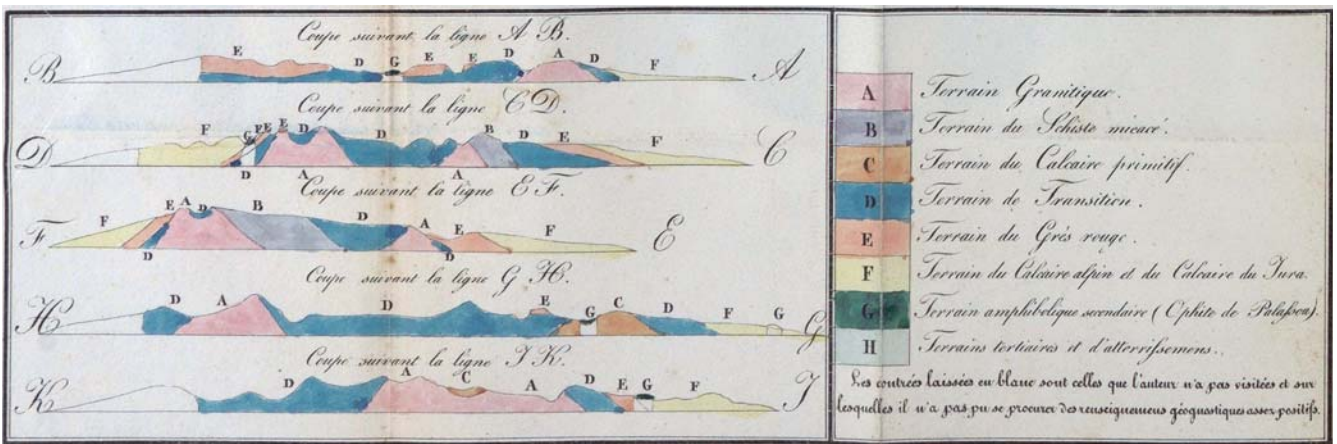 Coupe suivant la ligne A B.
B E D G E E D A D F A
Coupe suivant la ligne C D.
D F G F E E D D B D E F C
D A A
Coupe suivant la ligne E F.
F F A D B D A E F E
D D
Coupe suivant la ligne G H.
H D A D E G C D F G G
Coupe suivant la ligne J K.
K D A C A D E G F J
A Terrain Granitique.
B Terrain du Schiste micacé.
C Terrain du Calcaire primitif.
D Terrain de Transition.
E Terrain du Grés rouge.
F Terrain du Calcaire alpin et du Calcaire du Jura.
G Terrain amphibolique secondaire (Ophite de Palassou).
H Terrains tertiaires et d'atterrissemens.
Les contrées laissées en blanc sont celles que l'auteur n'a pas visitées et sur
lesquelles il n'a pas pu se procurer des renseignemens géognostiques assez positifs.